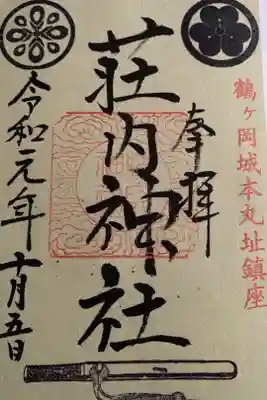 鶴ヶ岡城本丸址鎮座
奉拝
荘内神社
令和元年
十月五日